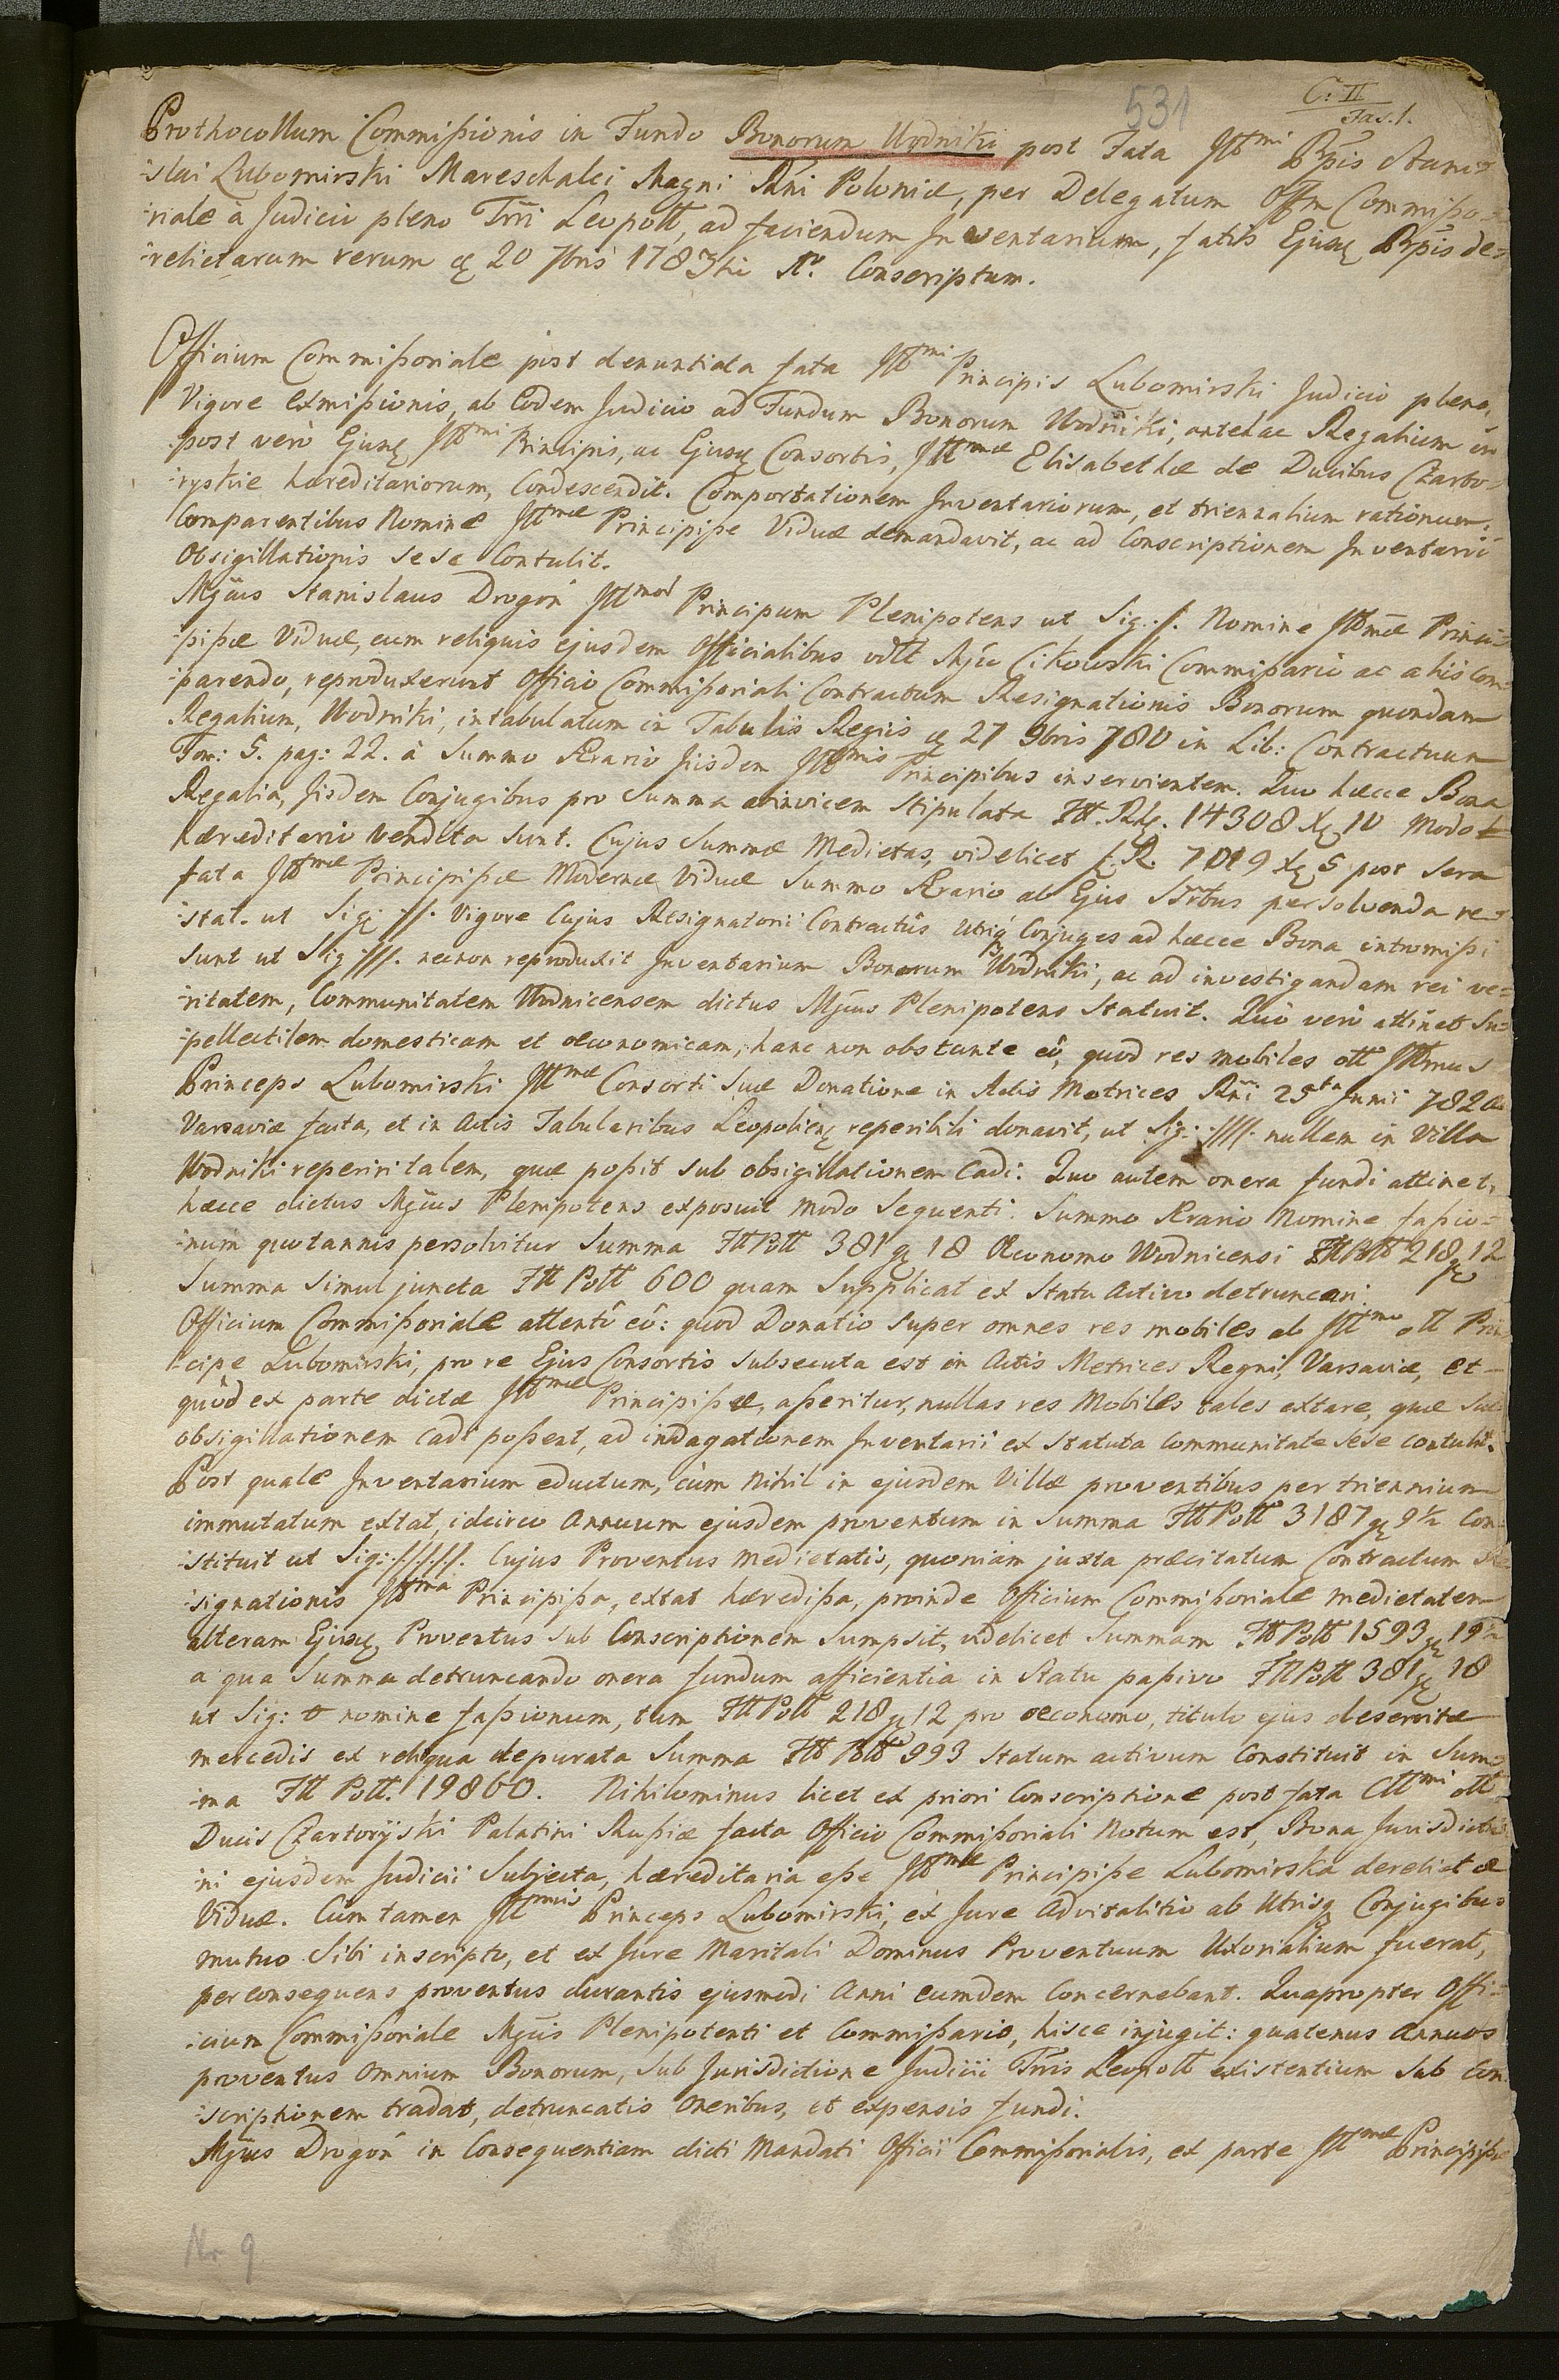 531
C: II
Fas. 1.
Prothocollum Commißionis in Fundo Bonorum Wodniki post Fata Illmi Ppis Stanis-
-slai Lubomirski Mareschalci Magni Rni Poloniæ, per Delegatum Offm Commißo-
-riale à Judicio pleno Trri Leopoll, ad faciendum Inventarium, fatis Ejusq Ppis de-
-relictarum rerum q 20 7bris 1783tii Ao. Conscriptum.
Officium Commißoriale post denuntiata fata Illmi Principis Lubomirski Judicio pleno,
Vigore Exmißionis, ab Eodem Judicio ad Fundum Bonorum Wodniki, antehac Regalium in
post verò Ejusq Illmi Principis, ac Ejusq Consortis, Illmæ Elisabethæ de Ducibus Czarto-
-ryskie hæreditariorum, Condescendit. Comportationem Inventariorum, et triennalium rationum,
Comparentibus Nomine Illmæ Principiße Viduæ demandavit, ac ad Conscriptionem Inventarii
Obsigillationis sese Contulit.
Mgcus Stanislaus Drogoń Illmor Principum Plenipotens ut Sig. /. Nomine Illmæ Princi-
-pißæ Viduæ, cum reliquis ejusdem Officialibus vdlt Mgco Cikowski Commißario ac aliis Com-
-parendo, reproduxerunt Officio Commißoriali Contractum Resignationis Bonorum quondam
Regalium, Wodniki, intabulatum in Tabulis Regiis q 27 9bris 780 in Lib: Contractuum
Tom: 5. pag: 22. à Summo Ærario Iisdem Illmis Principibus inservientem. Quo hæcce Bona
Regalia, Iisdem Conjugibus pro Summa adinvicem Stipulata Fll. Rh. 14308 Xq 10 Modo
hæreditario Vendita sunt. Cujus Summæ Medietas, videlicet f. R. 7019 Xq 5 post sera
fata Illmæ Principißæ Modernæ Viduæ Summo Ærario ab Ejus Srrbus persolvenda re-
-stat. ut Sig: //. Vigore Cujus Resignatorii Contractûs Utriq Conjuges ad hæcce Bona intromißi
sunt ut Sig ///. necnon reproduxit Inventarium Bonorum Wodniki, ac ad investigandam rei ve-
-ritatem, Communitatem Wodnicensem dictus Mgcus Plenipotens Statuit. Quò verò attinet Su-
-pellectilem domesticam et œconomicam, hanc non obstante eò, quod res mobiles oll Illmus
Princeps Lubomirski Illmæ Consorti suæ Donatione in Actis Metrices Rni 25ta Junii 782do
Varsaviæ facta, et in Actis Tabularibus Leopolienq reperibili donavit, ut Sig: ////. nullam in Villa
Wodniki reperiri talem, quæ poßit sub obsigillationem Cadi. Quo autem onera fundi attinet,
hæcce dictus Mgcus Plenipotens exposuit modo sequenti. Summo Ærario Nomine faßio-
-num quotannis persolvitur Summa Fll Poll 381 gq 18 Œconomo Wodnicensi Fll Poll 218 gq 12
Summa simul juncta Fll Poll 600 quam Supplicat ex Statu Activo detruncari.
Officium Commißoriale attentô eô: quod Donatio super omnes res mobiles ab Illmo oll Prin-
-cipe Lubomirski, pro re Ejus Consortis subsecuta est in Actis Metrices Regni, Varsaviæ, et
quòd ex parte dictæ Illmæ Principißæ, aßeritur, nullas res Mobiles tales extare, quæ sub
obsigillationem cadi poßent, ad indagationem Inventarii ex Statuta Communitate sese contulit.
Post quale Inventarium eductum, cùm Nihil in ejusdem Villæ proventibus per triennium
immutatum extat, idcirco Annuum ejusdem proventum in Summa Fll Poll 3187 gq 9½ Con-
-stituit ut Sig: /////. Cujus Proventus medietatis, quoniam juxta præcitatum Contractum Re-
-signationis Illma Principißa, extat hæredißa, proinde Officium Commißoriale medietatem
alteram Ejusq Proventus sub Conscriptionem sumpsit, videlicet Summam Fll Poll 1593 gq 19½
a qua Summa detruncando onera fundum afficientia in Statu paßivo Fll Poll 381 gq 18
ut Sig: nomine faßionum, tum Fll Poll 218 gq 12 pro œconomo, titulo ejus deservitæ
mercedis ex reliqua depurata Summa Fll Poll 993 Statum activum Constituit in Sum-
-ma Fll Poll. 19860. Nihilominus licet ex priori Conscriptione post fata Cllmi oll
Ducis Czartoryiski Palatini Rußiæ facta Officio Commißoriali Notum est, Bona Jurisdictio-
-ni ejusdem Judicii Subjecta, hæreditaria eße Illmæ Principiße Lubomirska derelictæ
Viduæ. Cum tamen Illmus Princeps Lubomirski, ex Jure Advitalitio ab Utrisq Conjugibus
mutuo sibi inscripto, et ex Jure Maritali Dominus Proventuum Uxorialium fuerat,
per consequens proventus durantis ejusmodi Anni eumdem Concernebant. Quapropter Offi-
-cium Commißoriale Mgcis Plenipotenti et Commißario, hisce injugit: quatenus annuos
proventus omnium Bonorum, sub Jurisdictione Judicii Trris Leopoll existentium sub Con-
-scriptionem tradat, detruncatis Oneribus, et expensis fundi.
Mgcus Drogoń in Consequentiam dicti Mandati Officii Commißorialis, ex parte Illmæ Principißæ
Nr 9